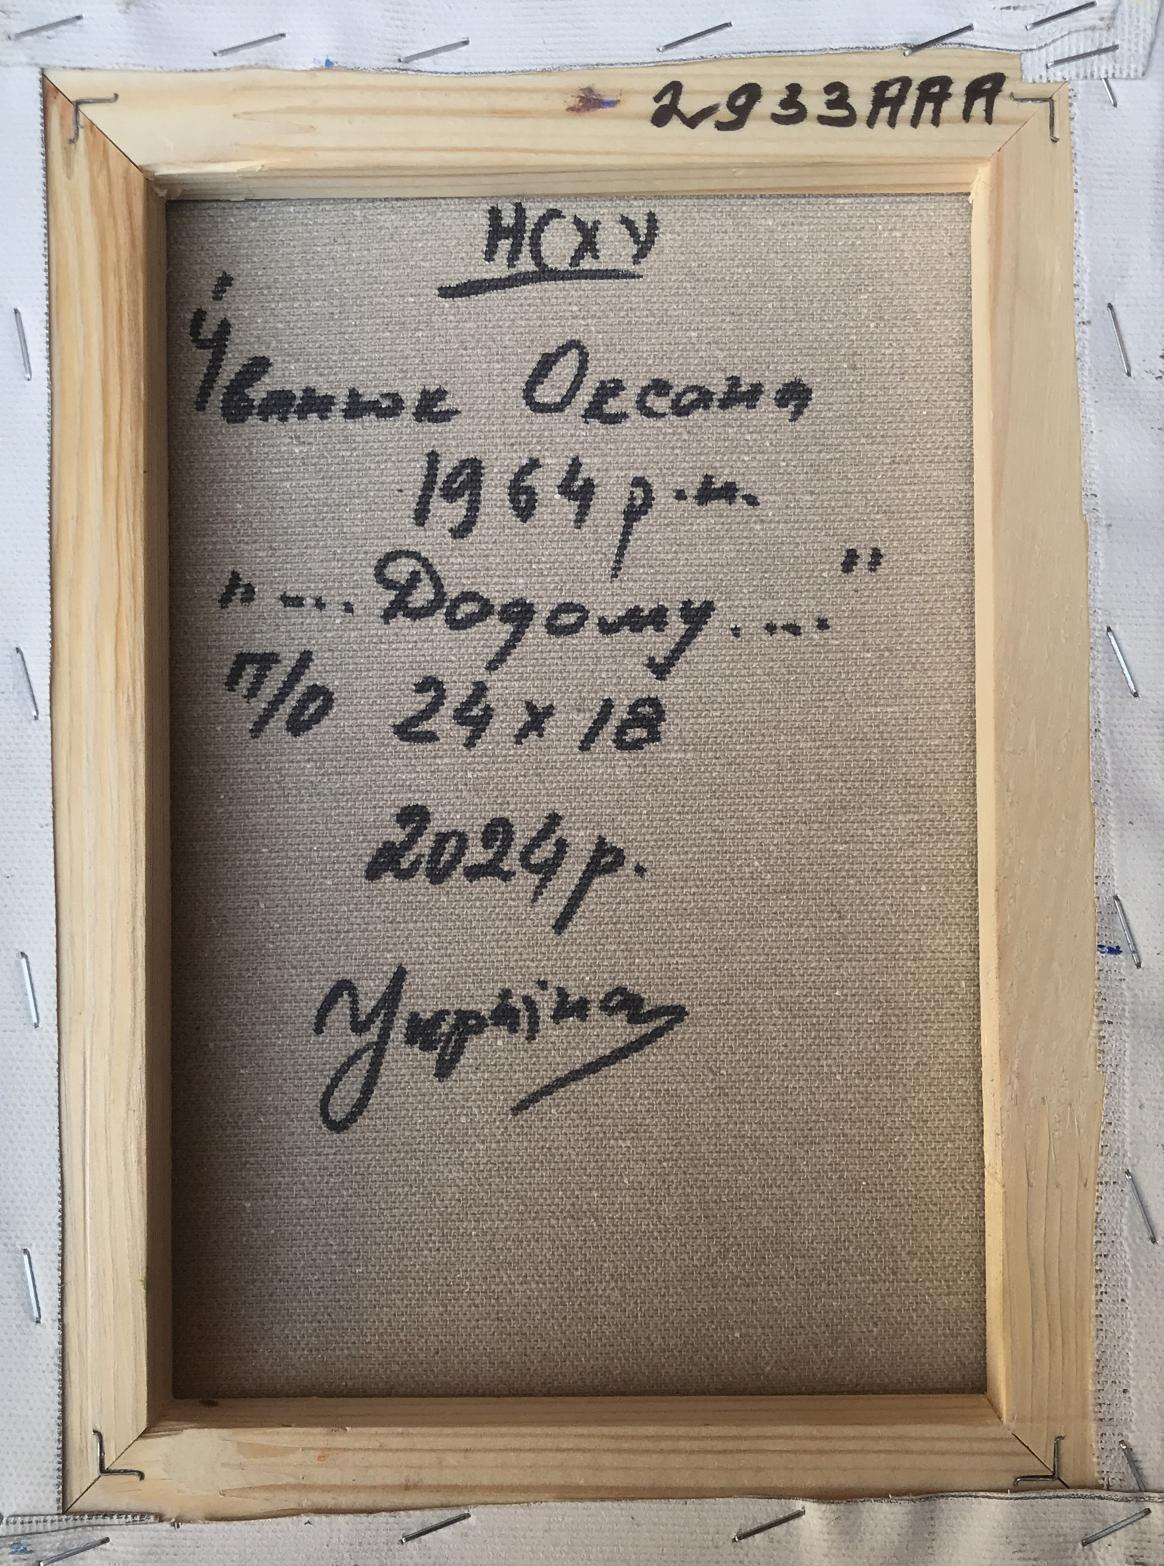 2933ААА
НСХУ
Іванюк Оксана
1964 р.н.
„....Додому....”
п/о 24 x 18
2024р.
Україна